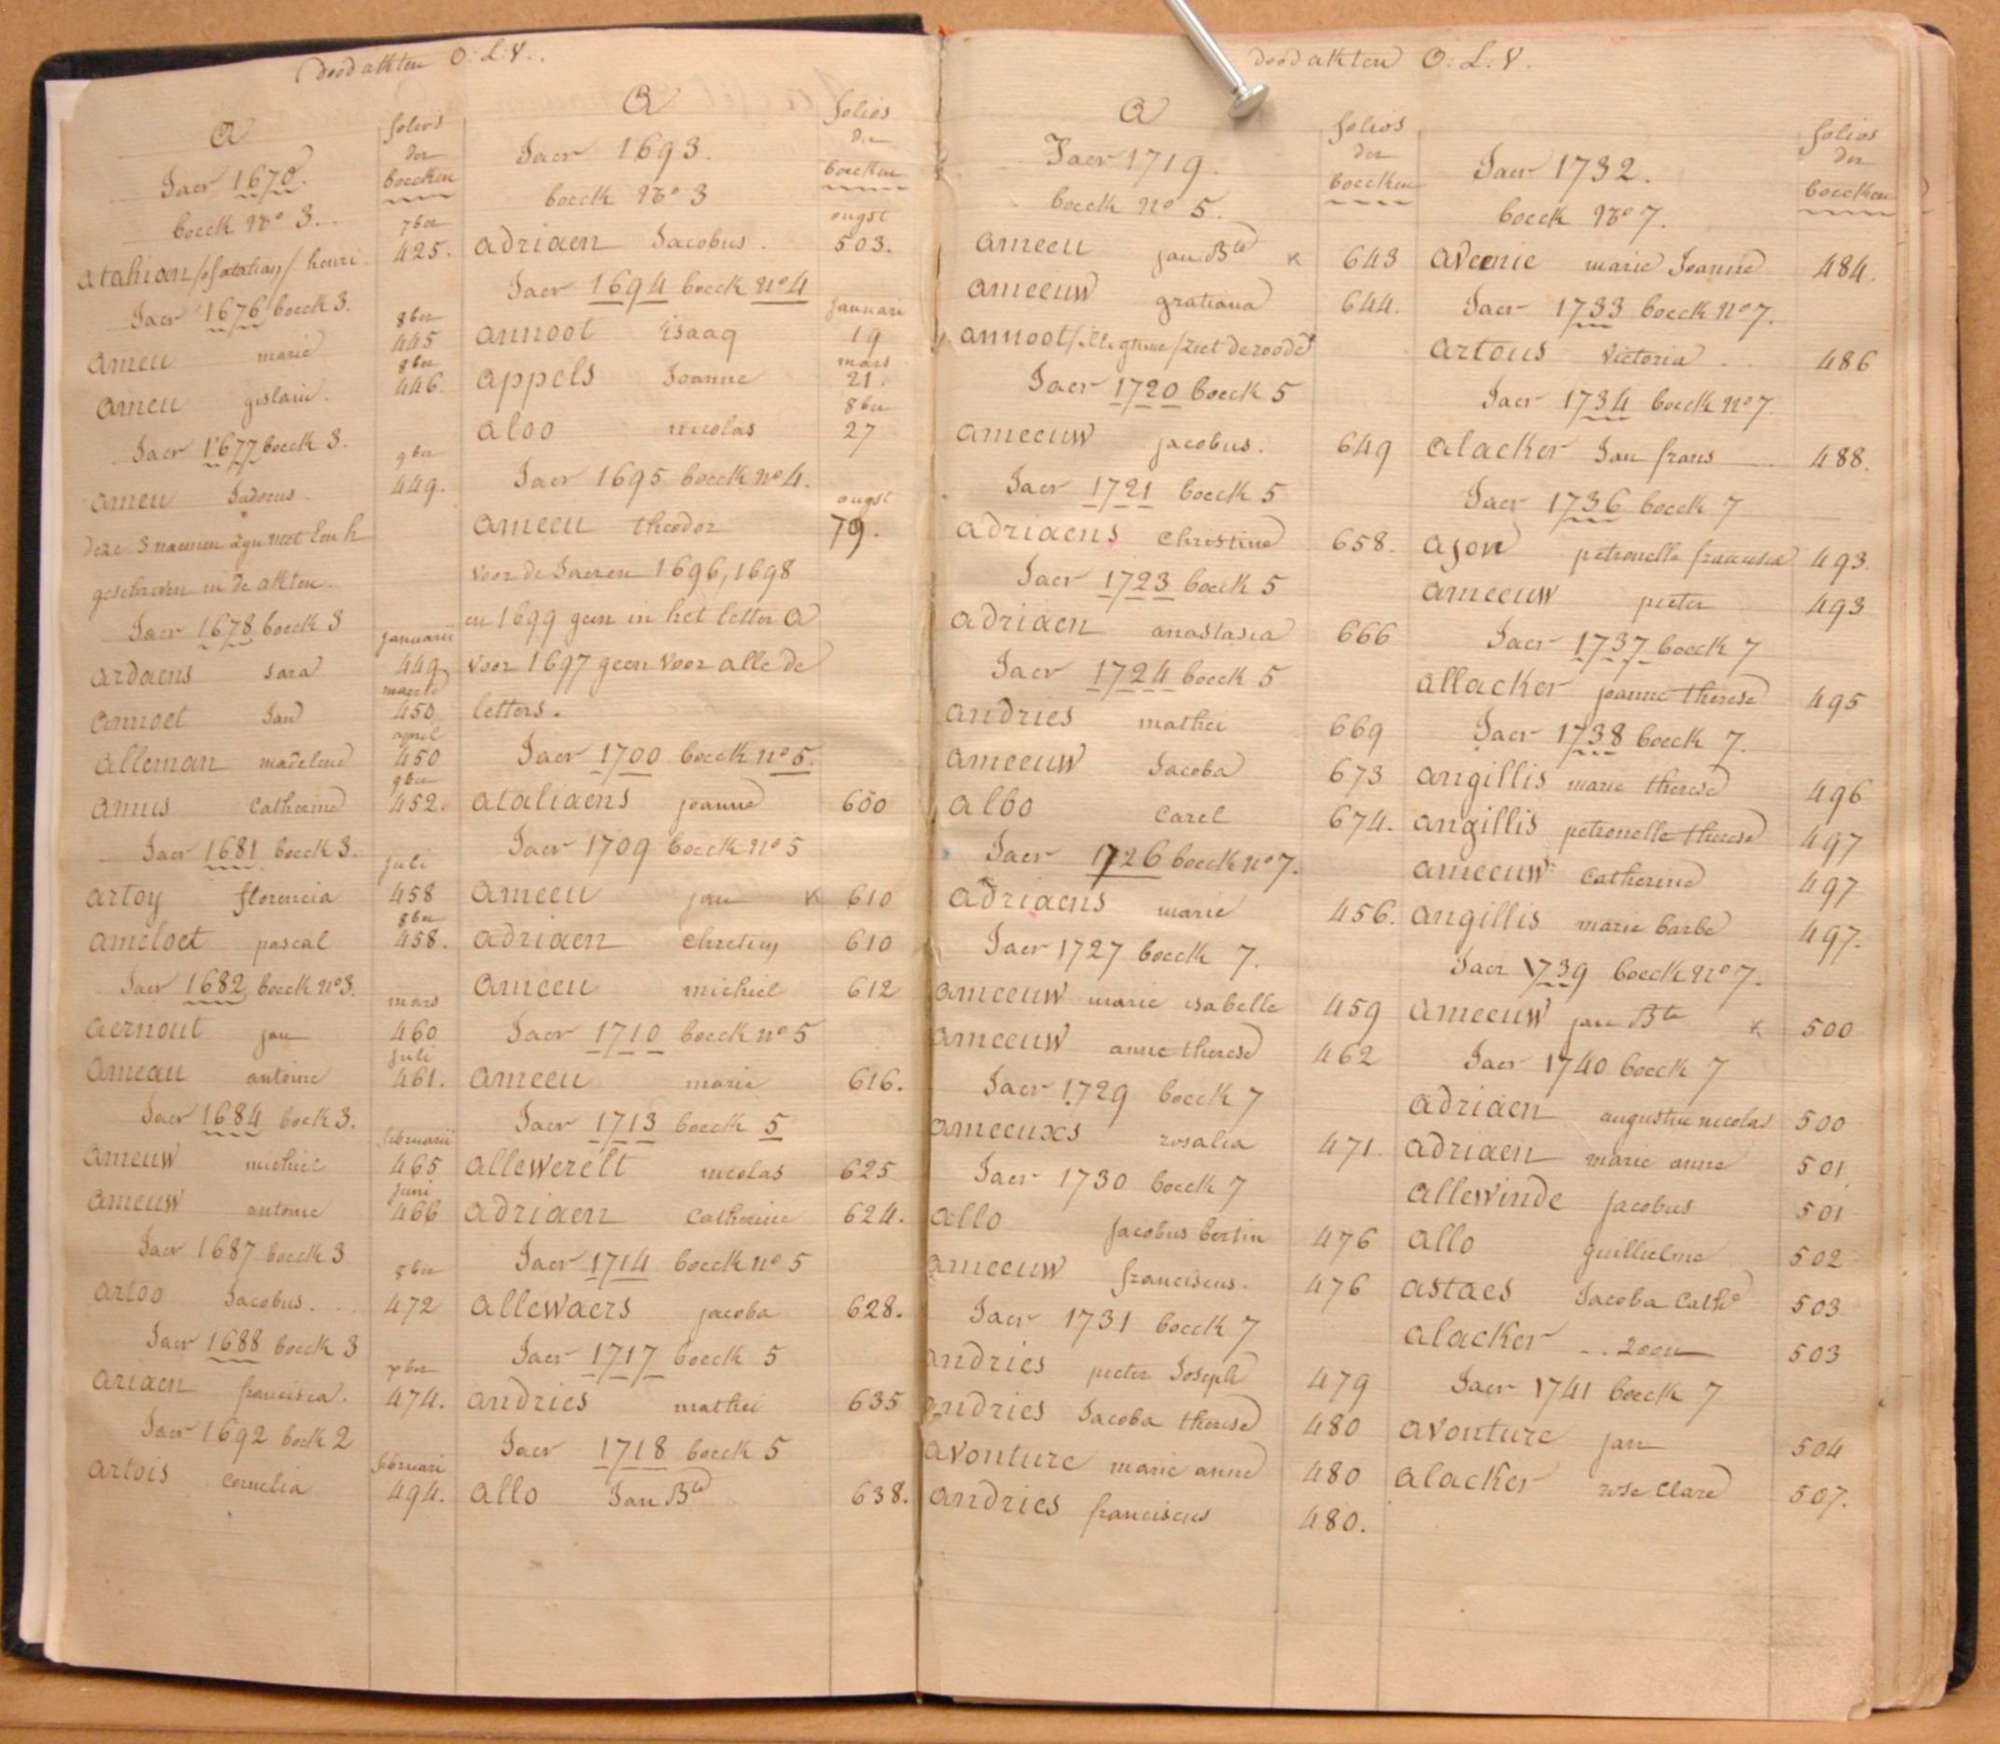 doodakten O.L.V.
A
folios
der
boecken
Jaer 1670.
boeck No 3.
7ber
atahian / of atalian / henri 425.
Jaer 1676 boeck 3.
8ber
ameu marie 445
8ber
ameu gislain. 446.
Jaer 1677 boeck 3.
9ber
ameu Judocus 449.
deze 3 naemen zyn met een h
geschreven in de akten.
Jaer 1678 boeck 3
januarii
ardaens sara 449
maerte
annoet Jan 450
april
alleman madelene 450
9ber
amus Catherine 452.
Jaer 1681 boeck 3.
juli
artoy florencia 458
8ber
ameloet pascal 458.
Jaer 1682 boeck no 3.
mars
aernout jan 460
juli
ameau antoine 461.
Jaer 1684 boek 3.
februarii
ameuw michiel 465
juni
ameuw antoine 466
Jaer 1687 boeck 3
8ber
artoo Jacobus. 472
Jaer 1688 boeck 3
xber
ariaen francisca. 474.
Jaer 1692 boek 2
februari
artois Cornelia 494.
A
folios
der
boecken
Jaer 1693.
boeck No 3
ougst
adriaen Jacobus. 503.
Jaer 1694 boeck no 4
januari
annoot Isaaq 19
mars
appels Joanne 21.
8ber
aloo nicolas 27
Jaer 1695 boeck no 4.
ougst
ameeu theodor 79.
voor de Jaeren 1696, 1698
en 1699 geen in het letter A
voor 1697 geen voor alle de
letters.
Jaer 1700 boeck no 5.
ataliaens joanne 600
Jaer 1709 boeck no 5
ameeu jan x 610
adriaen Chretien 610
ameeu michiel 612
Jaer 1710 boeck no 5
ameeu marie 616.
Jaer 1713 boeck 5
allewerelt nicolas 625
adriaen Catherine 624.
Jaer 1714 boeck no 5
allewaers jacoba 628.
Jaer 1717 boeck 5
andries mathei 635
Jaer 1718 boeck 5
allo Jan Bte 638.
doodakten O.L.V.
A
folios
der
boecken
Jaer 1719.
boeck no 5.
ameeu jan Bte x 643
ameeuw gratiana 644.
annoot / / ziet de roode
Jaer 1720 boeck 5
ameeuw jacobus. 649
Jaer 1721 boeck 5
adriaens Christine 658.
Jaer 1723 boeck 5
adriaen anastasia 666
Jaer 1724 boeck 5
andries mathei 669
ameeuw Jacoba 673
albo Carel 674.
Jaer 1726 boeck no 7.
adriaens marie 456.
Jaer 1727 boeck 7.
ameeuw marie isabelle 459
ameeuw anne therese 462
Jaer 1729 boeck 7
ameeuxs rosalia 471.
Jaer 1730 boeck 7
allo jacobus bertin 476
ameeuw franciscus. 476
Jaer 1731 boeck 7
andries pieter Joseph 479
andries Jacoba therese 480
avonture marie anne 480
andries franciscus 480.
folios
der
boecken
Jaer 1732.
boeck No 7.
aveenie marie Joanne 484.
Jaer 1733 boeck no 7.
artous victoria 486
Jaer 1734 boeck no 7
alacker Jan frans 488.
Jaer 1736 boeck 7
ajon petronelle francisca 493
ameeuw pieter 493
Jaer 1737 boeck 7
allacker joanne therese 495
Jaer 1738 boeck 7.
angillis marie therese 496
angillis petronelle therese 497
ameeuw Catherine 497
angillis marie barbe 497.
Jaer 1739 boeck no 7.
ameeuw jan Bte x 500
Jaer 1740 boeck 7
adriaen augustin nicolas 500
adriaen marie anne 501
allewinde jacobus 501
allo guillielme 502
astaes Jacoba Cathe 503
alacker .. zoon 503
Jaer 1741 boeck 7
avonture jan 504
alacker rose Clare 507.